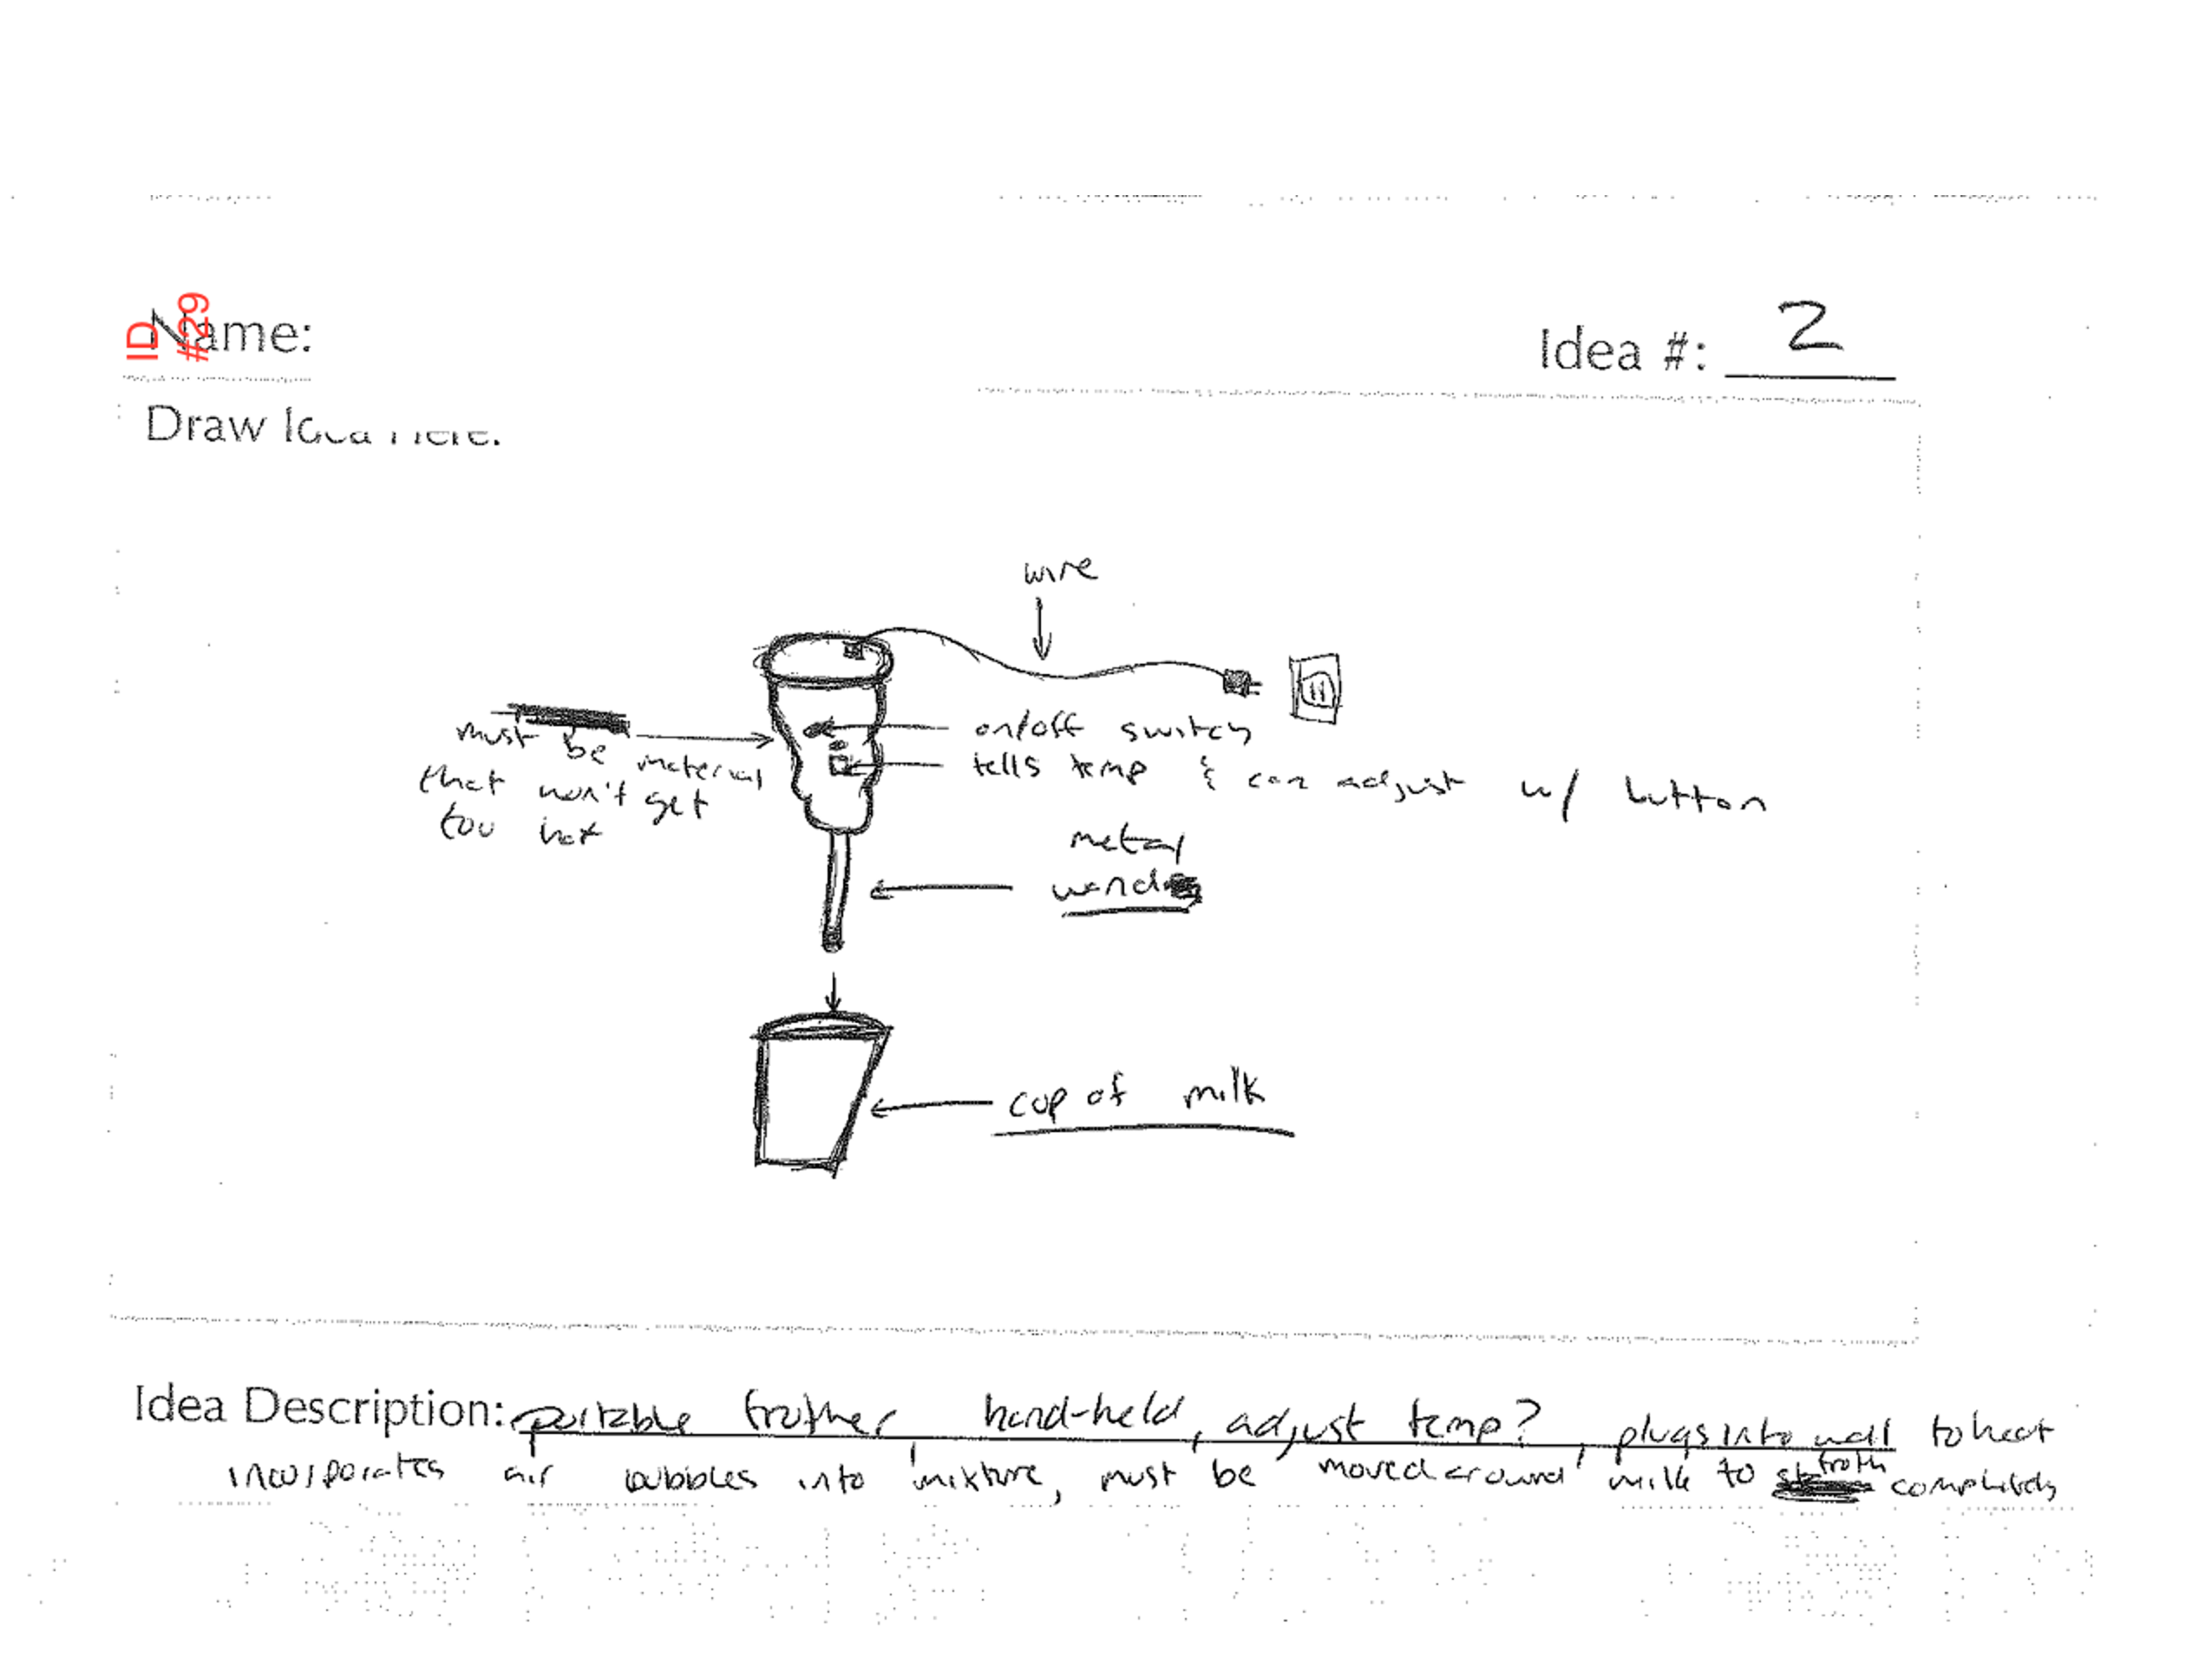 ID
#29
Name:
Idea #: 2
Draw Idea Here:
wire
on/off switch
must be material
that won't get
too hot
tells temp & can adjust w/ button
metal
wand
cup of milk
Idea Description: portable frother, hand-held, adjust temp?, plugs into wall to heat
incorporates air bubbles into mixture, must be moved around milk to froth completely